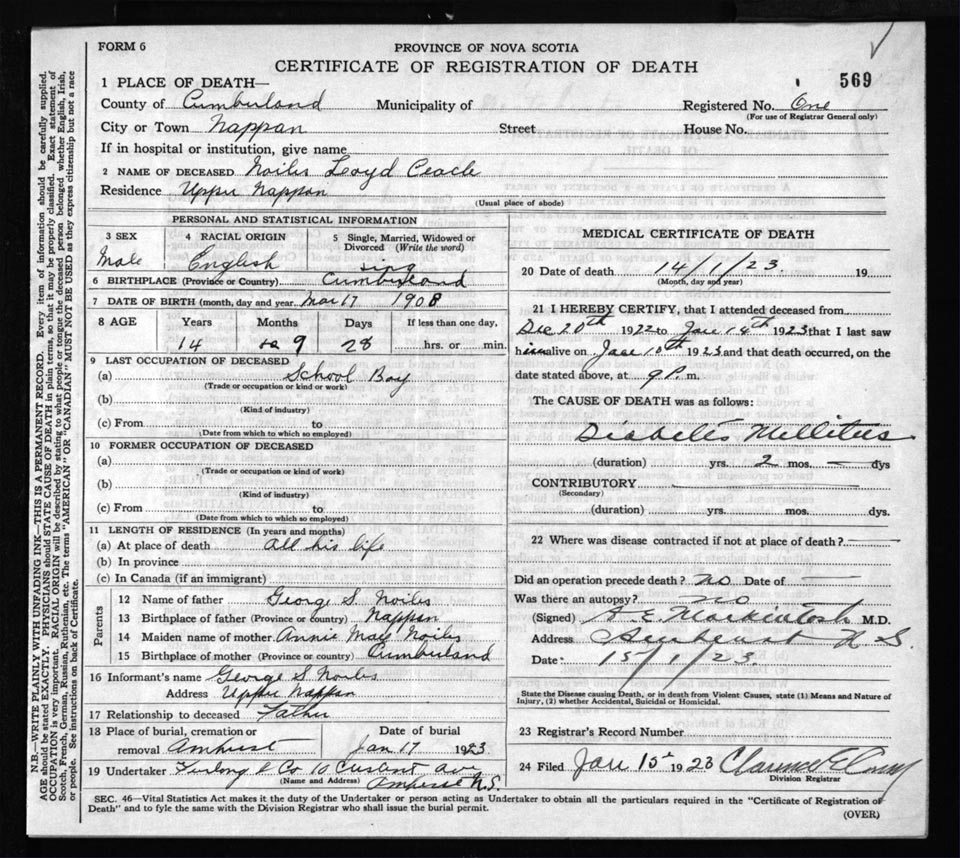 FORM 6
PROVINCE OF NOVA SCOTIA
CERTIFICATE OF REGISTRATION OF DEATH
569
1 PLACE OF DEATH—
County of Cumberland Municipality of Registered No. One
(For use of Registrar General only)
City or Town Nappan Street House No.
If in hospital or institution, give name
2 NAME OF DECEASED Noiles Loyd
Residence Upper Nappan
(Usual place of abode)
PERSONAL AND STATISTICAL INFORMATION
3 SEX 4 RACIAL ORIGIN 5 Single, Married, Widowed or Divorced (Write the word)
Male English sing
6 BIRTHPLACE (Province or Country) Cumberland
7 DATE OF BIRTH (month, day and year. Mar 17 1908
8 AGE Years Months Days If less than one day,
14 9 28 hrs. or min.
9 LAST OCCUPATION OF DECEASED
(a) School Boy
(Trade or occupation or kind or work)
(b)
(Kind of industry)
(c) From to
(Date from which to which so employed)
10 FORMER OCCUPATION OF DECEASED
(a)
(Trade or occupation or kind of work)
(b)
(Kind of industry)
(c) From to
(Date from which to which so employed)
11 LENGTH OF RESIDENCE (In years and months)
(a) At place of death all his life
(b) In province
(c) In Canada (if an immigrant)
Parents
12 Name of father George S. Noiles
13 Birthplace of father (Province or country) Nappan
14 Maiden name of mother Annie May Noiles
15 Birthplace of mother (Province or country) Cumberland
16 Informant's name George S Noiles
Address Upper Nappan
17 Relationship to deceased Father
18 Place of burial, cremation or removal Amherst Date of burial Jan 17 1923
19 Undertaker Furlong & Co 10 ave
(Name and Address) Amherst N.S.
MEDICAL CERTIFICATE OF DEATH
20 Date of death 14/1/23. 19
(Month, day and year)
21 I HEREBY CERTIFY, that I attended deceased from
Dec 20th 1922 to Jan 14th 1923 that I last saw
him alive on Jan 10th 1923 and that death occurred, on the
date stated above, at 9 P. m.
The CAUSE OF DEATH was as follows:
Diabetes Mellitus
(duration) yrs. 2 mos. — dys
CONTRIBUTORY
(Secondary)
(duration) yrs. mos. dys.
22 Where was disease contracted if not at place of death? —
Did an operation precede death? no Date of —
Was there an autopsy? no
(Signed) A. E. Mackintosh M.D.
Address Amherst N S
Date 15/1/23.
State the Disease causing Death, or in death from Violent Causes, state (1) Means and Nature of
Injury, (2) whether Accidental, Suicidal or Homicidal.
23 Registrar's Record Number
24 Filed Jan 15th 1923 Clarence E
Division Registrar
SEC. 46—Vital Statistics Act makes it the duty of the Undertaker or person acting as Undertaker to obtain all the particulars required in the "Certificate of Registration of
Death" and to fyle the same with the Division Registrar who shall issue the burial permit.
(OVER)
N.B.—WRITE PLAINLY WITH UNFADING INK—THIS IS A PERMANENT RECORD. Every item of information should be carefully supplied.
AGE should be stated EXACTLY. PHYSICIANS should STATE CAUSE OF DEATH in plain terms, so that it may be properly classified. Exact statement of
OCCUPATION is very important. RACIAL ORIGIN will be described by stating to what people or tongue the deceased person belonged whether English, Irish,
Scotch, French, German, Russian, Ruthenian, etc. The terms "AMERICAN" OR "CANADIAN" MUST NOT BE USED as they express citizenship but not a race
or people. See instructions on back of Certificate.